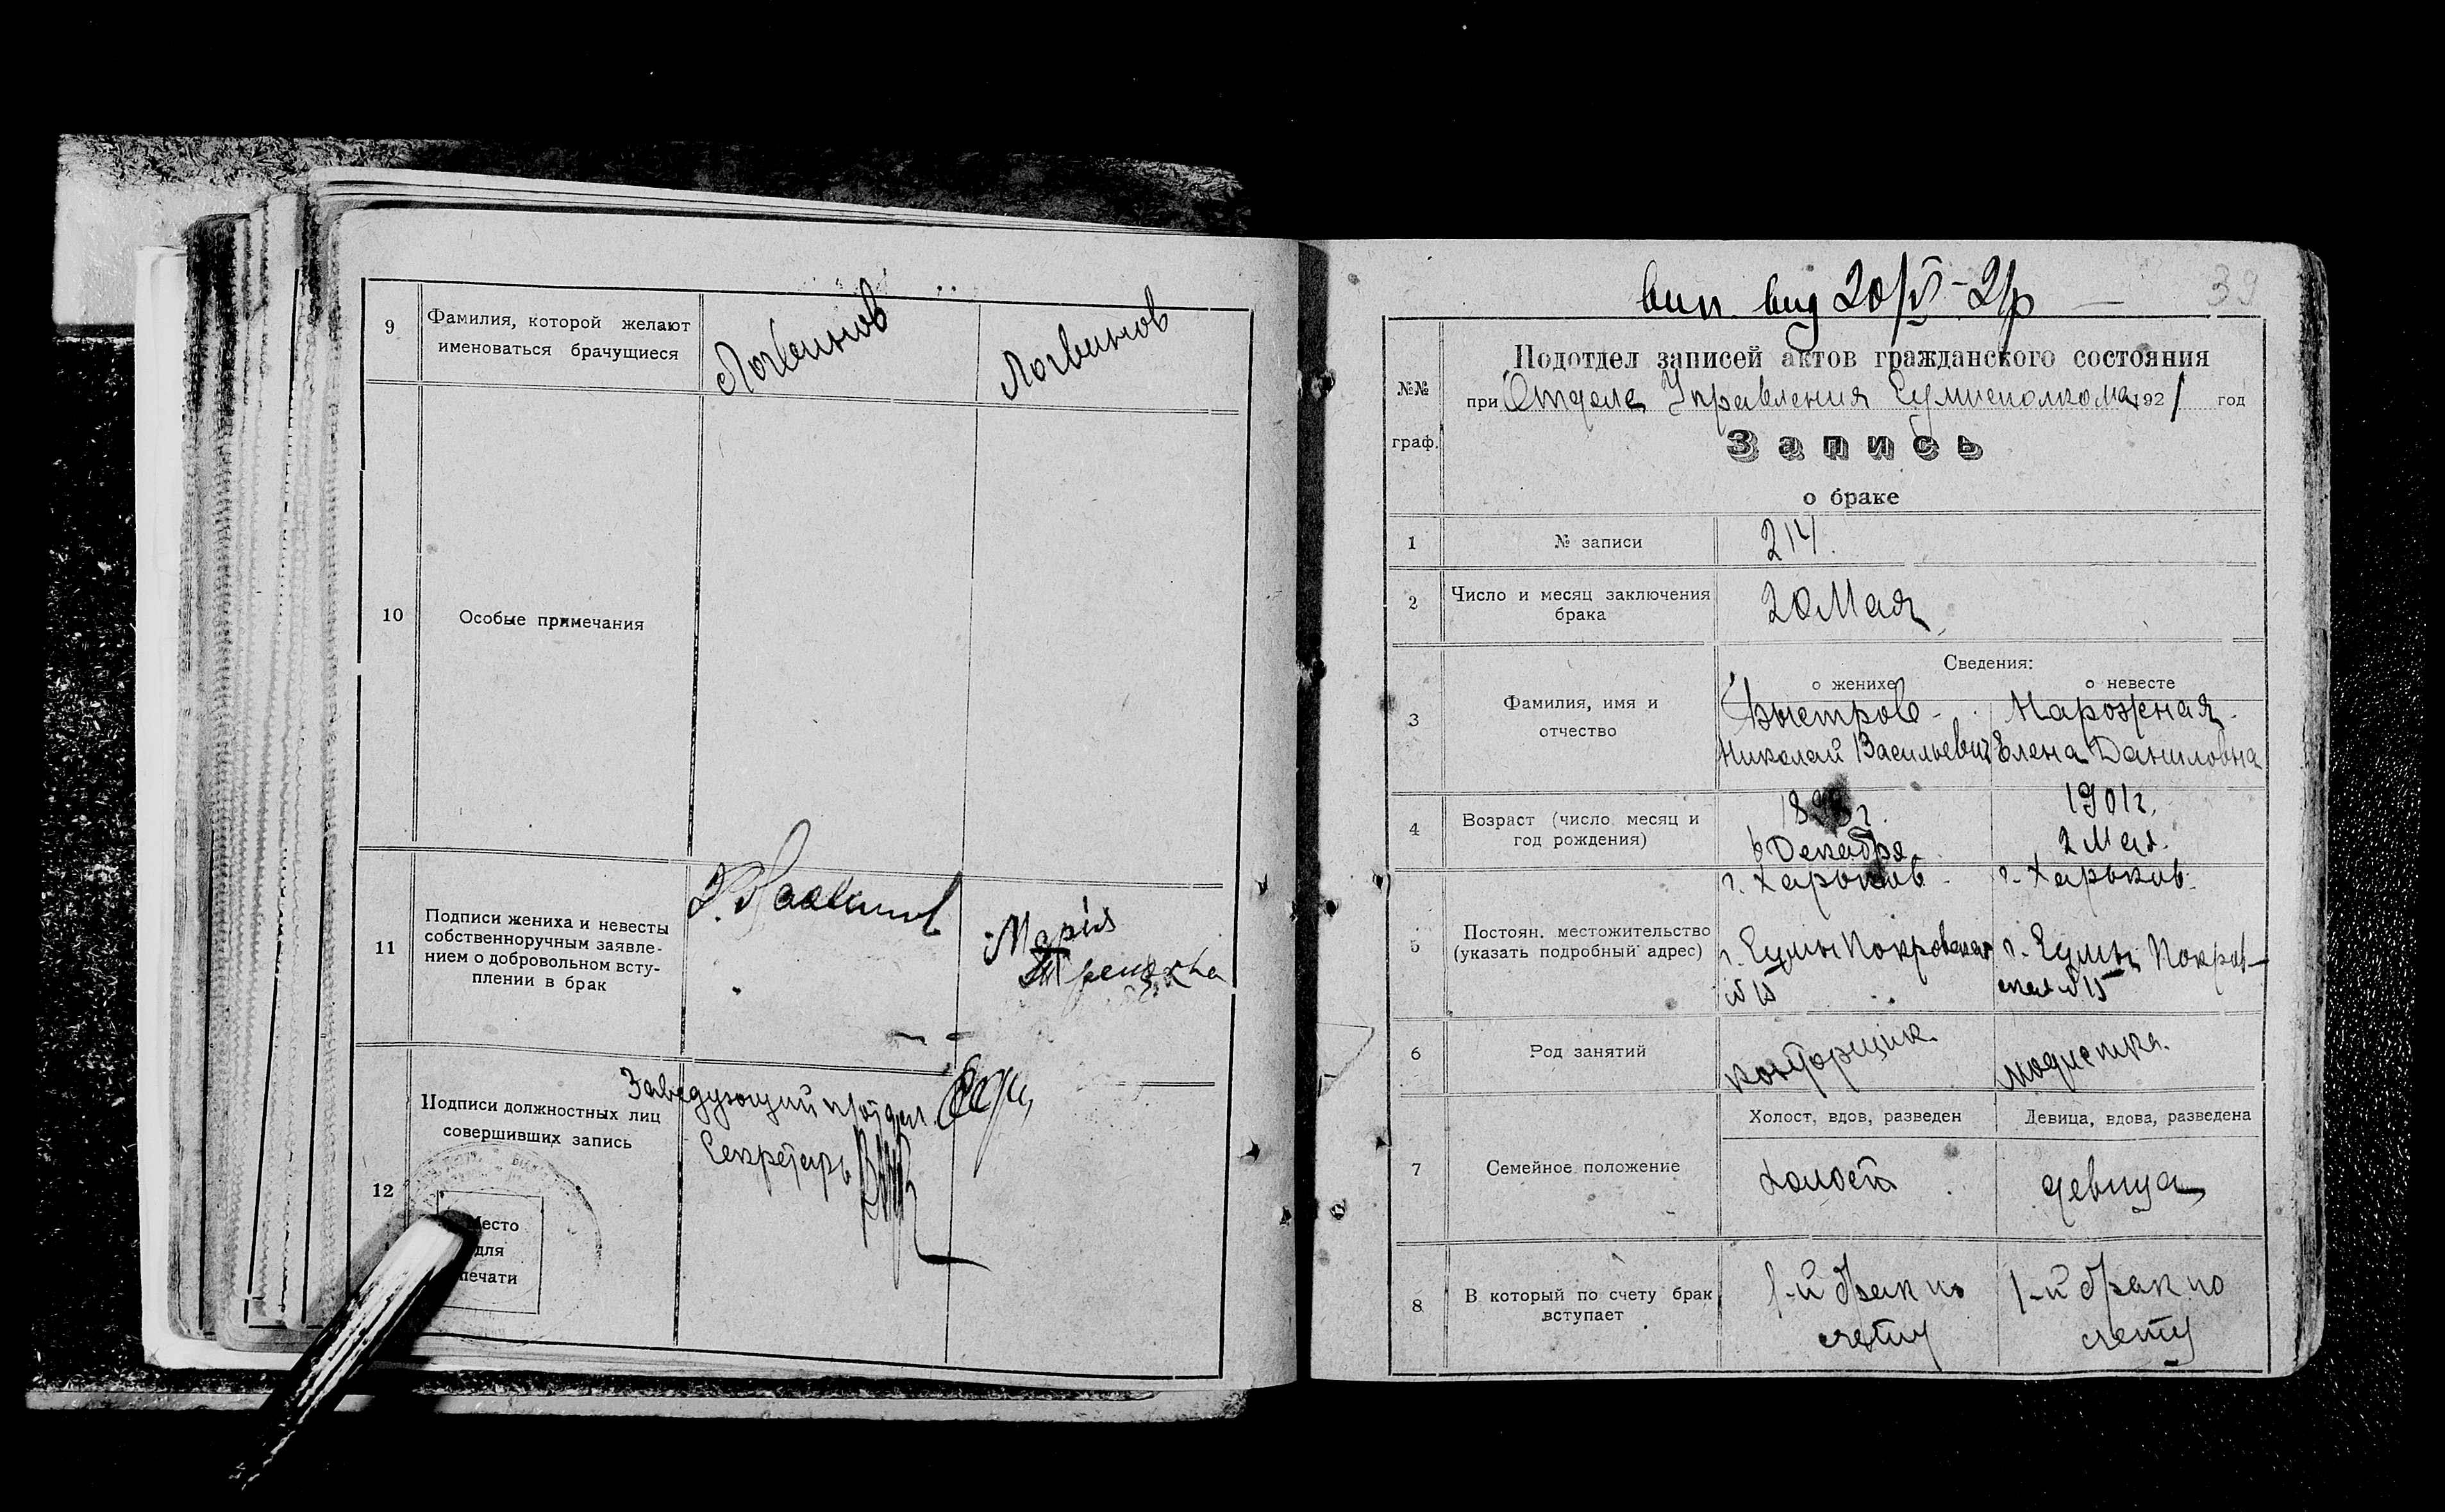 9
Фамилия, которой желают
именоваться брачущиеся
Логвинов
Логвинов
10
Особые примечания
11
Подписи жениха и невесты
собственноручным заявле-
нием о добровольном всту-
плении в брак
Марія
12
Подписи должностных лиц
совершивших запись
Заведующий п/отдел.
Секретарь
Место
для
печати
39
вып. вид 20/V-21р
№№
граф.
Подотдел записей актов гражданского состояния
при Отделе Управления Сумисполкома 1921 год
Запись
о браке
1
№ записи
214.
2
Число и месяц заключения
брака
20 Мая
Сведения:
о женихе
о невесте
3
Фамилия, имя и
отчество
Быстров
Николай Васильевич
Нарожная
Елена Даниловна
4
Возраст (число месяц и
год рождения)
6 Декабря
г. Харьков
1901 г.
2 Мая.
г. Харьков.
5
Постоян. местожительство
(указать подробный адрес)
г. Сумы Покровская
№ 15
г. Сумы Покров-
ская № 15
6
Род занятий
конторщик.
модистка.
7
Семейное положение
Холост, вдов, разведен
Девица, вдова, разведена
холост
девица
8
В который по счету брак
вступает
1-й брак по
счету
1-й брак по
счету